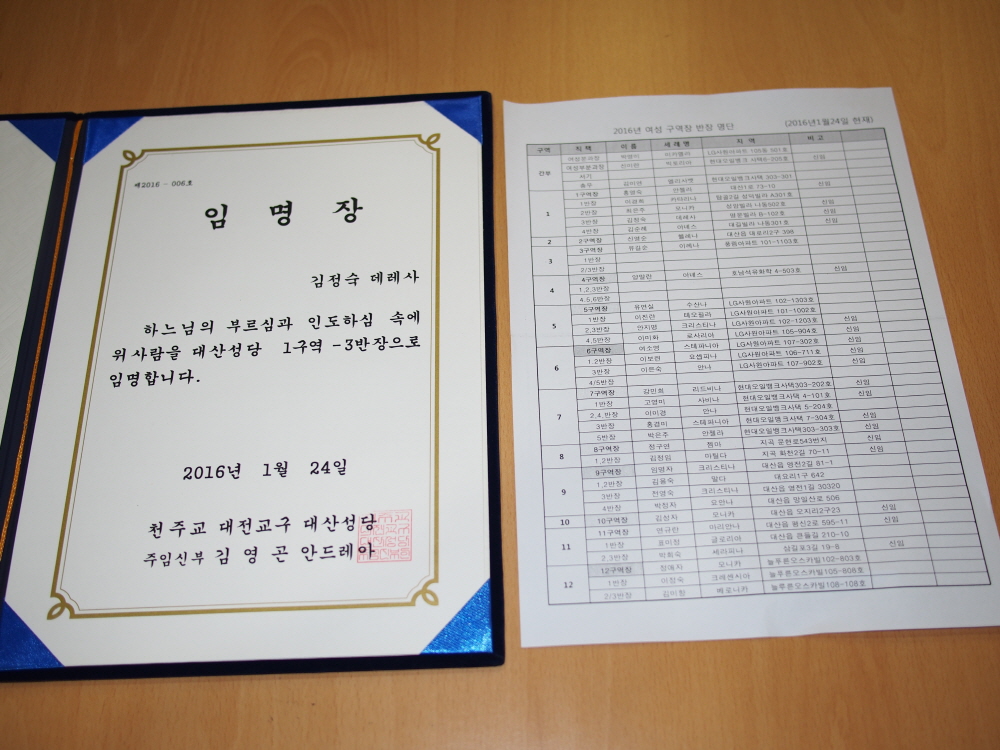 제2016 - 006호
임 명 장
김정숙 데레사
하느님의 부르심과 인도하심 속에
위사람을 대산성당 1구역 -3반장으로
임명합니다.
2016년 1월 24일
천주교 대전교구 대산성당
주임신부 김 영 곤 안드레아
2016년 여성 구역장 반장 명단 (2016년1월24일 현재)
구역 직책 이름 세례명 지역 비고
간부 LG사원아파트 105동 501호
신임
서기 엘리사벳 현대오일뱅크사택 303-301
총무 안젤라 대산1로 73-10 신임
1 1구역장 홍명숙 카타리나
1반장 모니카 신임
2반장 최은주 데레사 신임
3반장 김정숙 아네스 신임
4반장 김순례 헬레나 신임
2 2구역장
3 3구역장 풍림아파트 101-1103호
1반장
2/3반장
4 4구역장 양말란 아네스 호남석유화학 4-503호 신임
1,2,3반장
4,5,6반장
5 5구역장 유연실 수산나 LG사원아파트 102-1303호
1반장 이진란 데오필라 LG사원아파트 101-1002호
2,3반장 안지영 크리스티나 LG사원아파트 102-1203호 신임
4,5반장 이미화 로사리아 LG사원아파트 105-904호 신임
6 6구역장 여소영 스테파니아 LG사원아파트 107-302호 신임
1,2반장 이보란 요셉피나 LG사원아파트 106-711호 신임
3반장 이른숙 안나 LG사원아파트 107-902호 신임
4/5반장
7 7구역장 강민희 리드비나 현대오일뱅크사택303-202호 신임
1반장 고영미 사비나 현대오일뱅크사택 4-101호 신임
2,4,반장 이미경 안나 현대오일뱅크사택 5-204호
3반장 홍경미 스테파니아 현대오일뱅크사택 7-304호 신임
5반장 박은주 안젤라 현대오일뱅크사택303-303호 신임
8 8구역장 정구연 젬마 지곡 문현로543번지 신임
1,2반장 김정임 마틸다 지곡 화천2길 70-11 신임
9 9구역장 임명자 크리스티나 대산읍 영전2길 81-1
1,2반장 김용숙 말다 대요리1구 642
3반장 전영숙 크리스티나 대산읍 영전1길 30320
4반장 박정자 요안나 대산읍 망일산로 506
10 10구역장 김창자 모니카 대산읍 오지리2구23 신임
11 11구역장 연규란 아리안나 대산읍 평신2로 595-11 신임
1반장 표미정 글로리아 대산읍 관들길 210-10
2,3반장 박희숙 세라피나 삼길포3길 19-8 신임
12 12구역장 장애자 모니카 늘푸른오스카빌102-803호
1반장 이장숙 크레센시아 늘푸른오스카빌105-808호
2/3반장 김미정 베로니카 늘푸른오스카빌108-108호